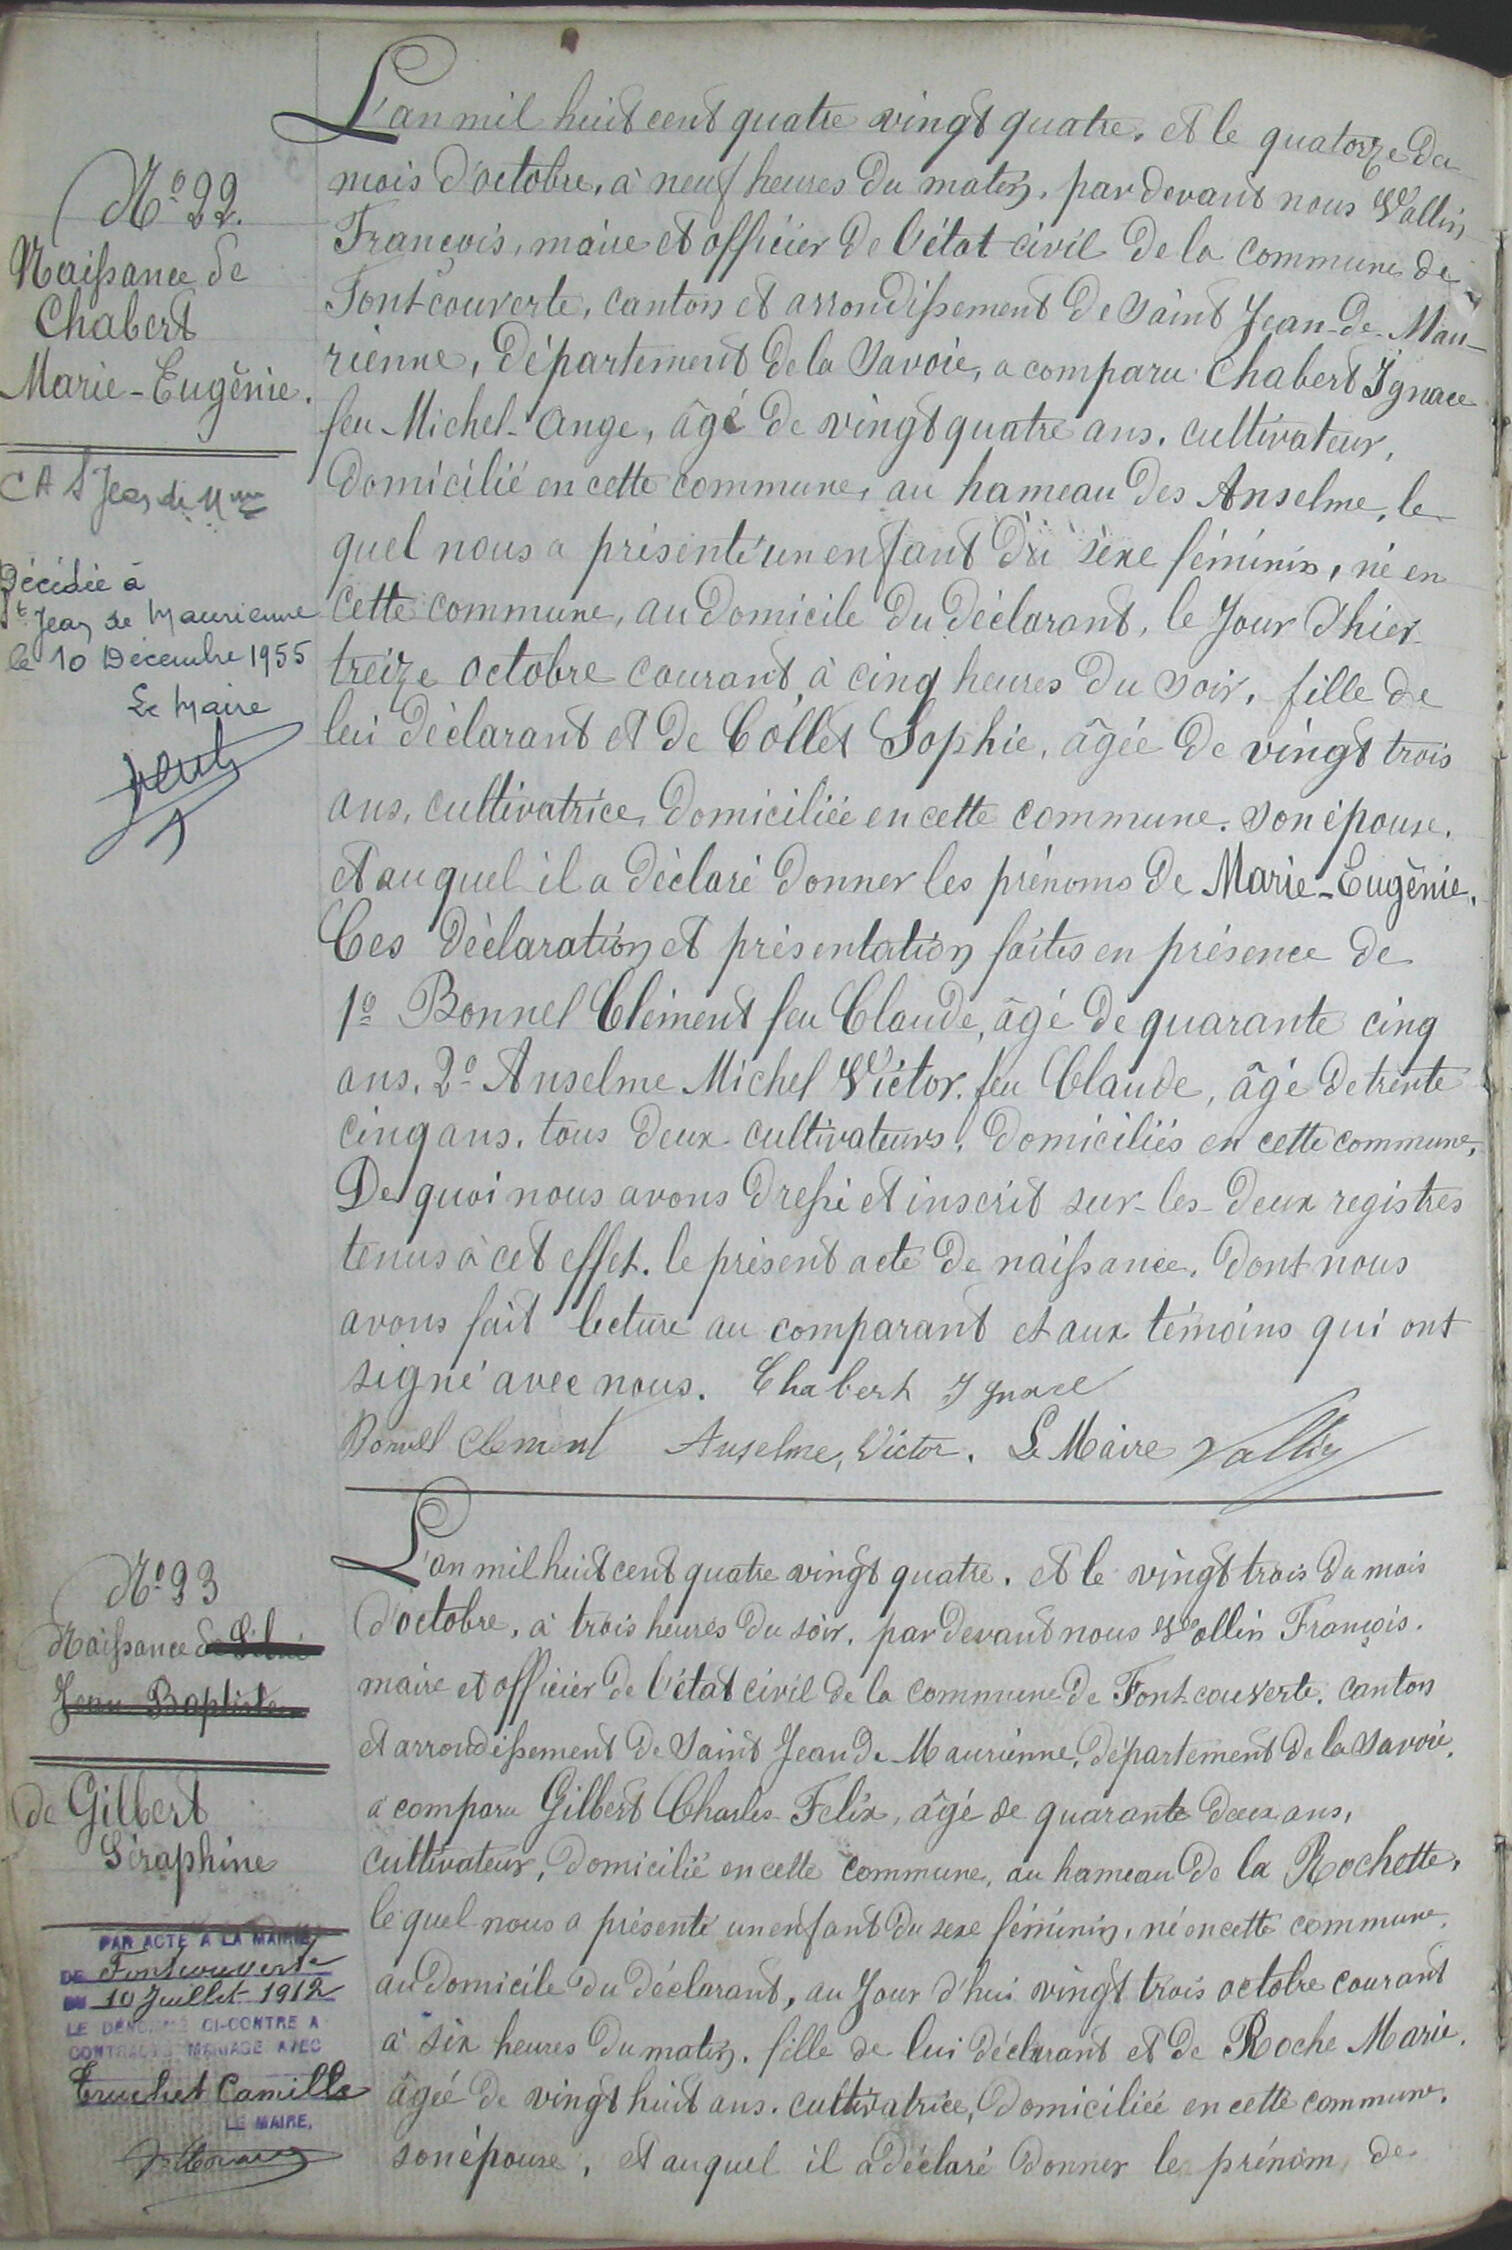 N° 22.
Naissance de
Chabert
Marie-Eugénie.
CA St Jean de Mne
Décédée à
St Jean de Maurienne
le 10 Décembre 1955
Le Maire
L'an mil huit cent quatre vingt quatre, et le quatorze du
mois d'octobre, à neuf heures du matin, par devant nous Vallin
François, maire et officier de l'état civil de la commune de
Fontcouverte, canton et arrondissement de Saint Jean-de-Mau-
rienne, département de la Savoie, a comparu Chabert Ignace
feu Michel-Ange, âgé de vingt quatre ans, cultivateur,
domicilié en cette commune, au hameau des Anselme, le
quel nous a présenté un enfant du sèxe féminin, né en
cette commune, au domicile du déclarant, le jour d'hier
treize octobre courant à cinq heures du soir, fille de
lui déclarant et de Collet Sophie, âgée de vingt trois
ans, cultivatrice, domiciliée en cette commune, son épouse,
et au quel il a déclaré donner les prénoms de Marie-Eugénie.
Ces déclaration et présentation faites en présence de
1° Bonnel Clément feu Claude, âgé de quarante cinq
ans, 2° Anselme Michel Victor, feu Claude, âgé de trente
cinq ans, tous deux cultivateurs, domiciliés en cette commune.
De quoi nous avons dressé et inscrit sur-les-deux registres
tenus à cet effet, le présent acte de naissance, dont nous
avons fait lecture au comparant et aux témoins qui ont
signé avec nous. Chabert Ignace
Bonnel Clement Anselme, Victor. Le Maire Vallin
N° 23
Naissance de
Jean Baptiste
de Gilbert
Séraphine
PAR ACTE A LA MAIRIE
DE Fontcouverte
DU 10 Juillet 1912
LE DÉNOMMÉ CI-CONTRE A
CONTRACTÉ MARIAGE AVEC
Truchet Camille
LE MAIRE,
L'an mil huit cent quatre vingt quatre, et le vingt trois du mois
d'octobre, à trois heures du soir, par devant nous Vallin François,
maire et officier de l'état civil de la commune de Fontcouverte, canton
et arrondissement de Saint Jean de Maurienne, département de la Savoie,
a comparu Gilbert Charles-Felix, âgé de quarante deux ans,
cultivateur, domicilié en cette commune, au hameau de la Rochette,
le quel nous a présenté un enfant du sexe féminin, né en cette commune,
au domicile du déclarant, au jour d'hui vingt trois octobre courant
à six heures du matin, fille de lui déclarant et de Roche Marie,
âgée de vingt huit ans, cultivatrice, domiciliée en cette commune,
son épouse, et auquel il a déclaré donner le prénom de